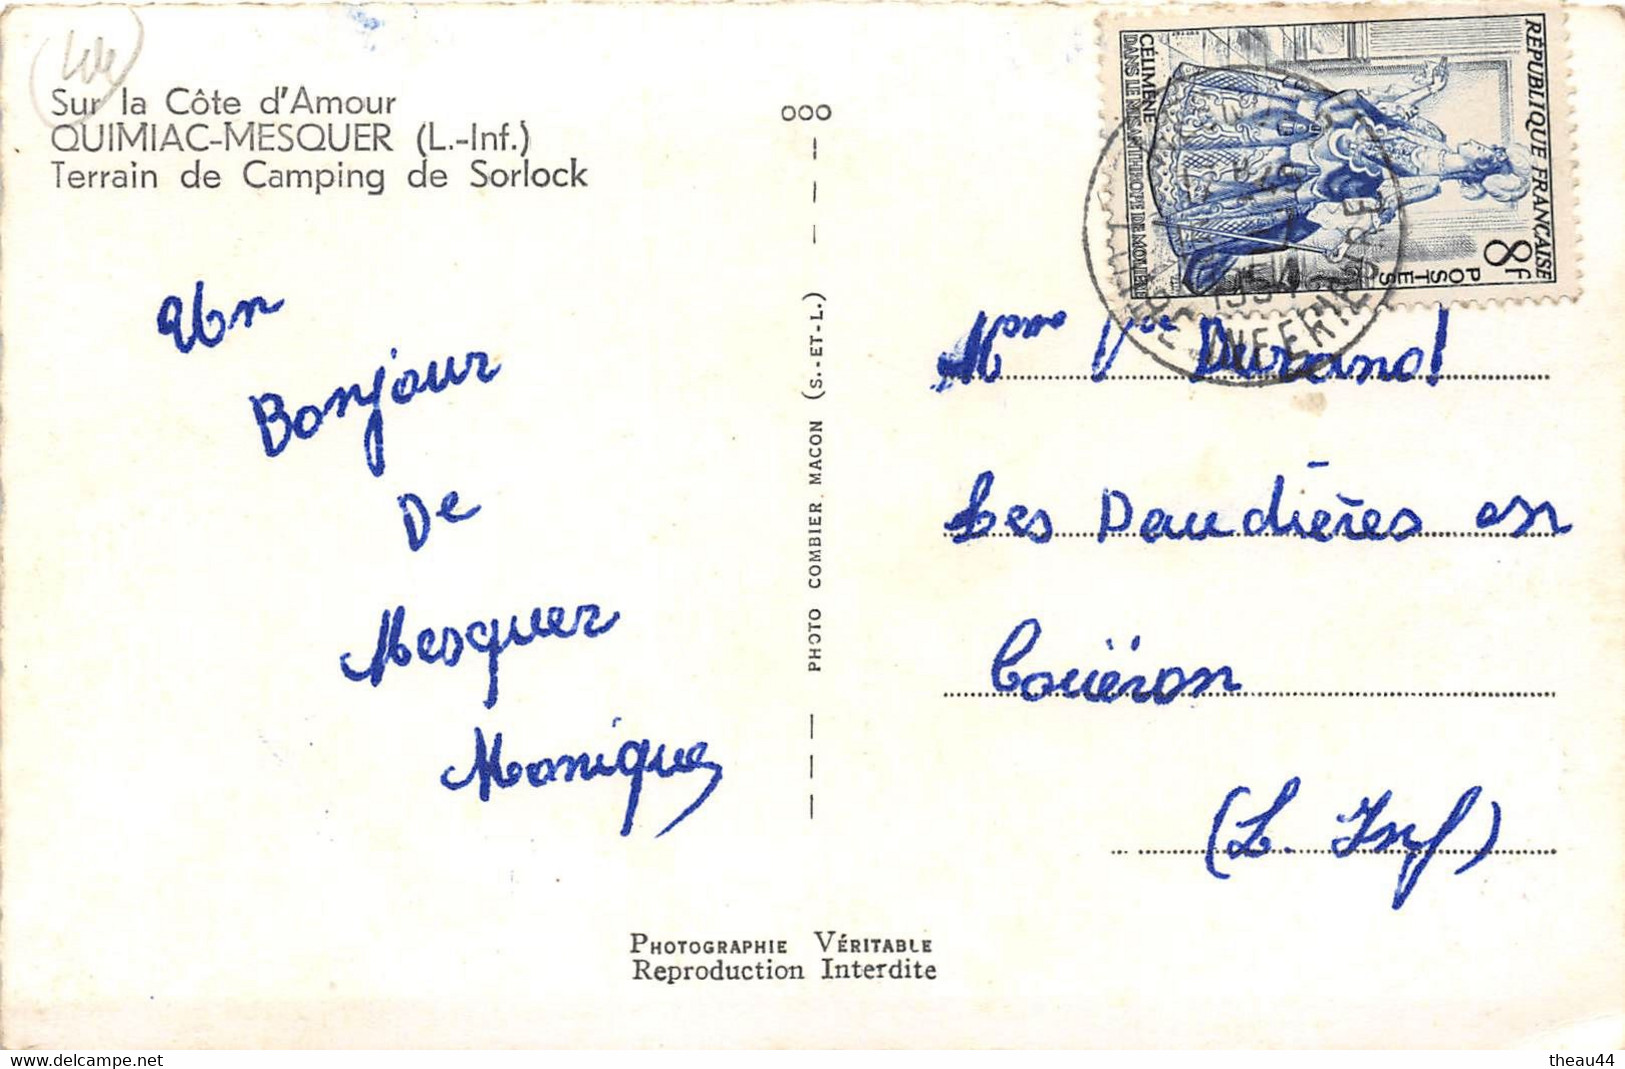 Sur la Côte d'Amour
QUIMIAC-MESQUER (L.-Inf.)
Terrain de Camping de Sorlock
Un
Bonjour
De
Mesquer
Monique
OOO
PHOTO COMBIER MACON (S.-ET-L.)
RÉPUBLIQUE FRANÇAISE
8F
POSTES
CÉLIMÈNE
DANS LE MISANTHROPE DE MOLIÈRE
1954
LOIRE INFERIEURE
Mme Vve Durand
Les Daudières en
Couëron
(L. Inf)
PHOTOGRAPHIE VÉRITABLE
Reproduction Interdite
www.delcampe.net
theau44